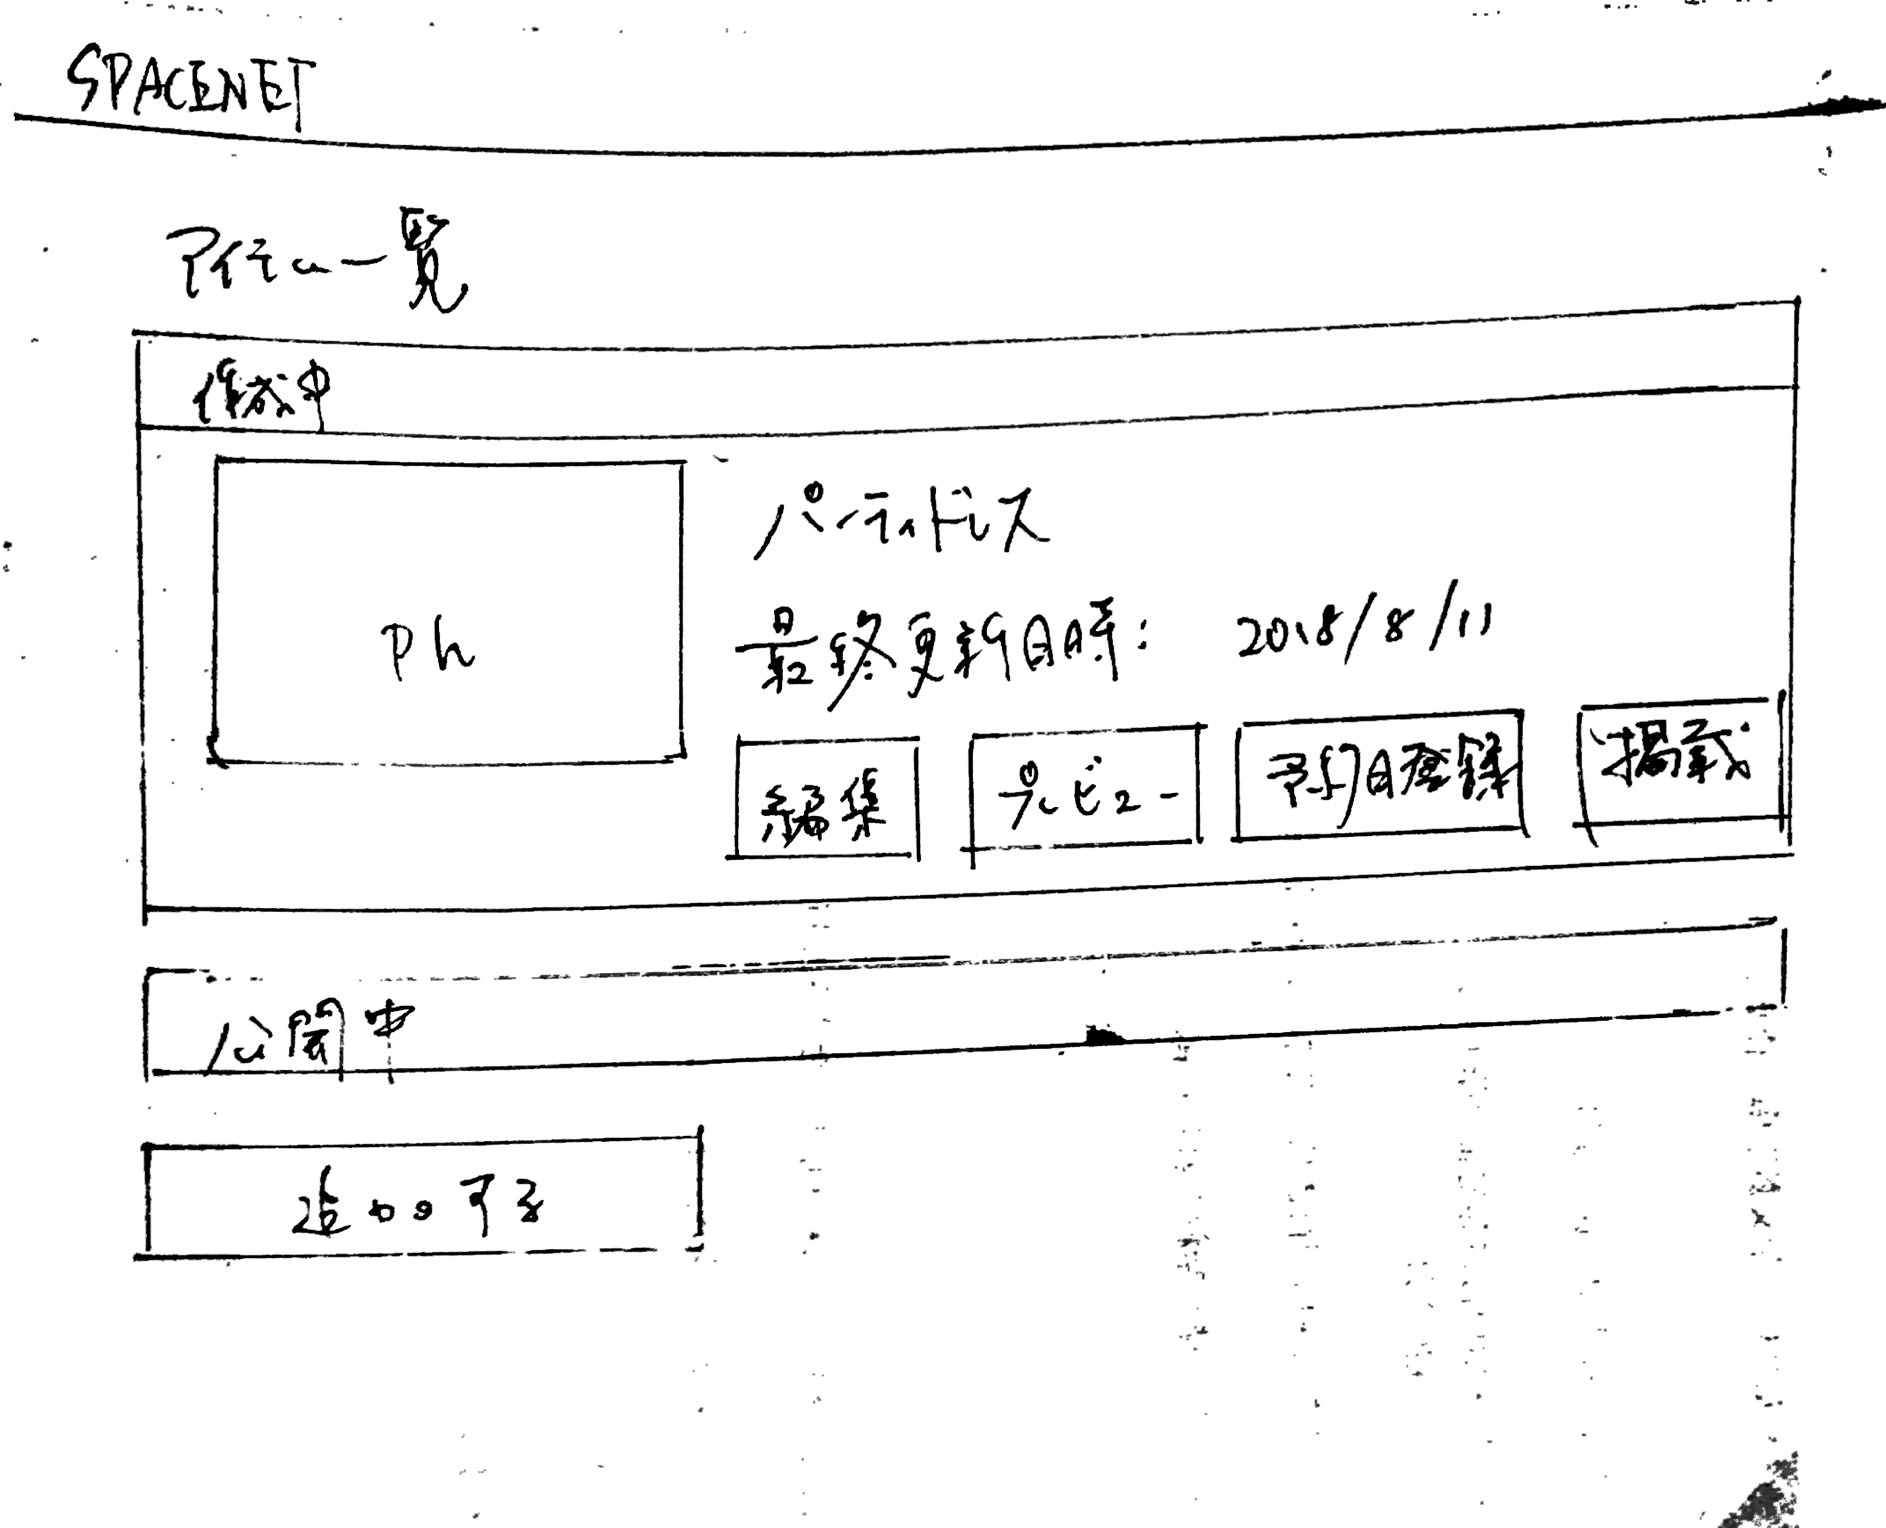 SPACENET
アイテム一覧
作成中
Ph
パーティドレス
最終更新日時: 2018/8/11
編集
プレビュー
予約日登録
掲載
公開中
追加する